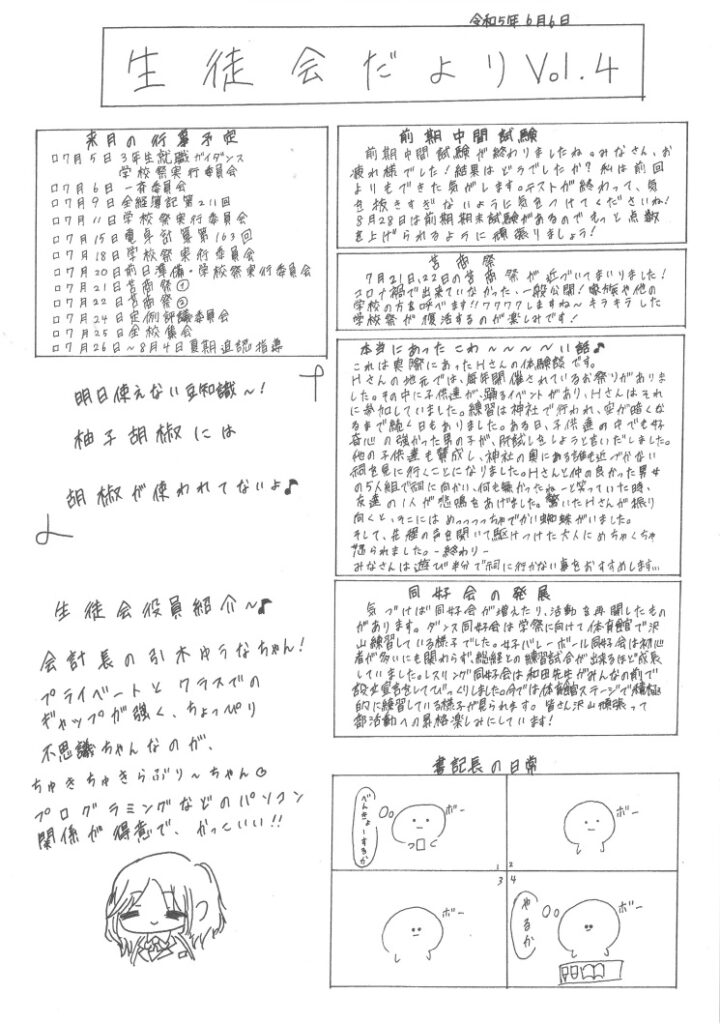 令和5年6月6日
生徒会だよりVol.4
来月の行事予定
ロ7月5日3年生就職ガイダンス
学校祭実行委員会
ロ7月6日一斉委員会
ロ7月9日全経簿記第211回
ロ7月11日学校祭実行委員会
ロ7月15日電卓計算第163回
ロ7月18日学校祭実行委員会
ロ7月20日前日準備・学校祭実行委員会
ロ7月21日苫商祭①
ロ7月22日苫商祭②
ロ7月24日定例評議委員会
ロ7月25日全校集会
ロ7月26日~8月4日夏期追認指導
明日使えない豆知識~!
柚子胡椒には
胡椒が使われてないよ♪
生徒会役員紹介~♪
会計長の引木ゆうなちゃん!
プライベートとクラスでの
ギャップが強く、ちょっぴり
不思議ちゃんなのが、
ちゅきちゅきらぶり~ちゃん
プログラミングなどのパソコン
関係が得意で、かっこいい!!
前期中間試験
前期中間試験が終わりましたね。みなさん、お
疲れ様でした!結果はどうでしたか?私は前回
よりもできた気がします。テストが終わって、気
を抜きすぎないように気をつけてくださいね!
8月28日は前期期末試験があるのでもっと点数
を上げられるように頑張りましょう!
苫商祭
7月21日、22日の苫商祭が近づいてまいりました!
コロナ禍で出来ていなかった、一般公開!家族や他の
学校の方を呼べます!!ワクワクしますね~キラキラした
学校祭が復活するのが楽しみです!
本当にあったこわ~~~~い話♪
これは実際にあったHさんの体験談です。
Hさんの地元では、毎年開催されているお祭りがありま
した。その中に子供達が、踊るイベントがあり、Hさんはそれ
に参加していました。練習は神社で行われ、空が暗くな
るまで続く日もありました。ある日、子供達の中でも好
奇心の強かった男の子が、肝試しをしようと言いだしました。
他の子供達も賛成し、神社の奥にある誰も近づかない
祠を見に行くことになりました。Hさんと仲の良かった男女
の5人組で祠に向かい、何も無かったねーと笑っていた時、
友達の1人が悲鳴をあげました。驚いたHさんが振り
向くと、そこにはめっっっっちゃでかい蜘蛛がいました。
そして、先程の声を聞いて駆けつけた大人にめちゃくちゃ
怒られました。-終わり-
みなさんは遊び半分で祠に行かない事をおすすめします…
同好会の発展
気づけば同好会が増えたり、活動を再開したもの
があります。ダンス同好会は学祭に向けて体育館で沢
山練習している様子でした。女子バレーボール同好会は初心
者が多いにも関わらず、他校との練習試合が出来るほど成長
していました。レスリング同好会は和田先生がみんなの前で
設立宣言をしてびっくりしました。今では体育館ステージで積極
的に練習している様子が見られます。皆さん沢山頑張って
部活動への昇格楽しみにしています!
書記長の日常
べんきょーするか
ボー
1
ボー
2
ボー
3
4
やるか
ボー